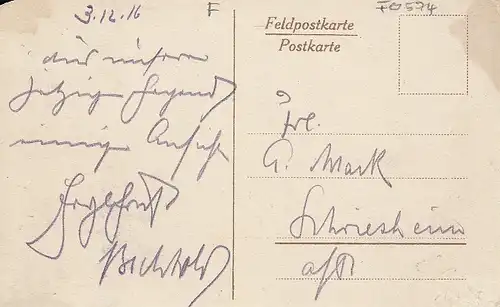 3.12.16
F
FO574
Feldpostkarte
Postkarte
aus unserer
jetzigen Gegend
einige Ansicht
Bechtold
Frl.
G. Mack
Schriesheim